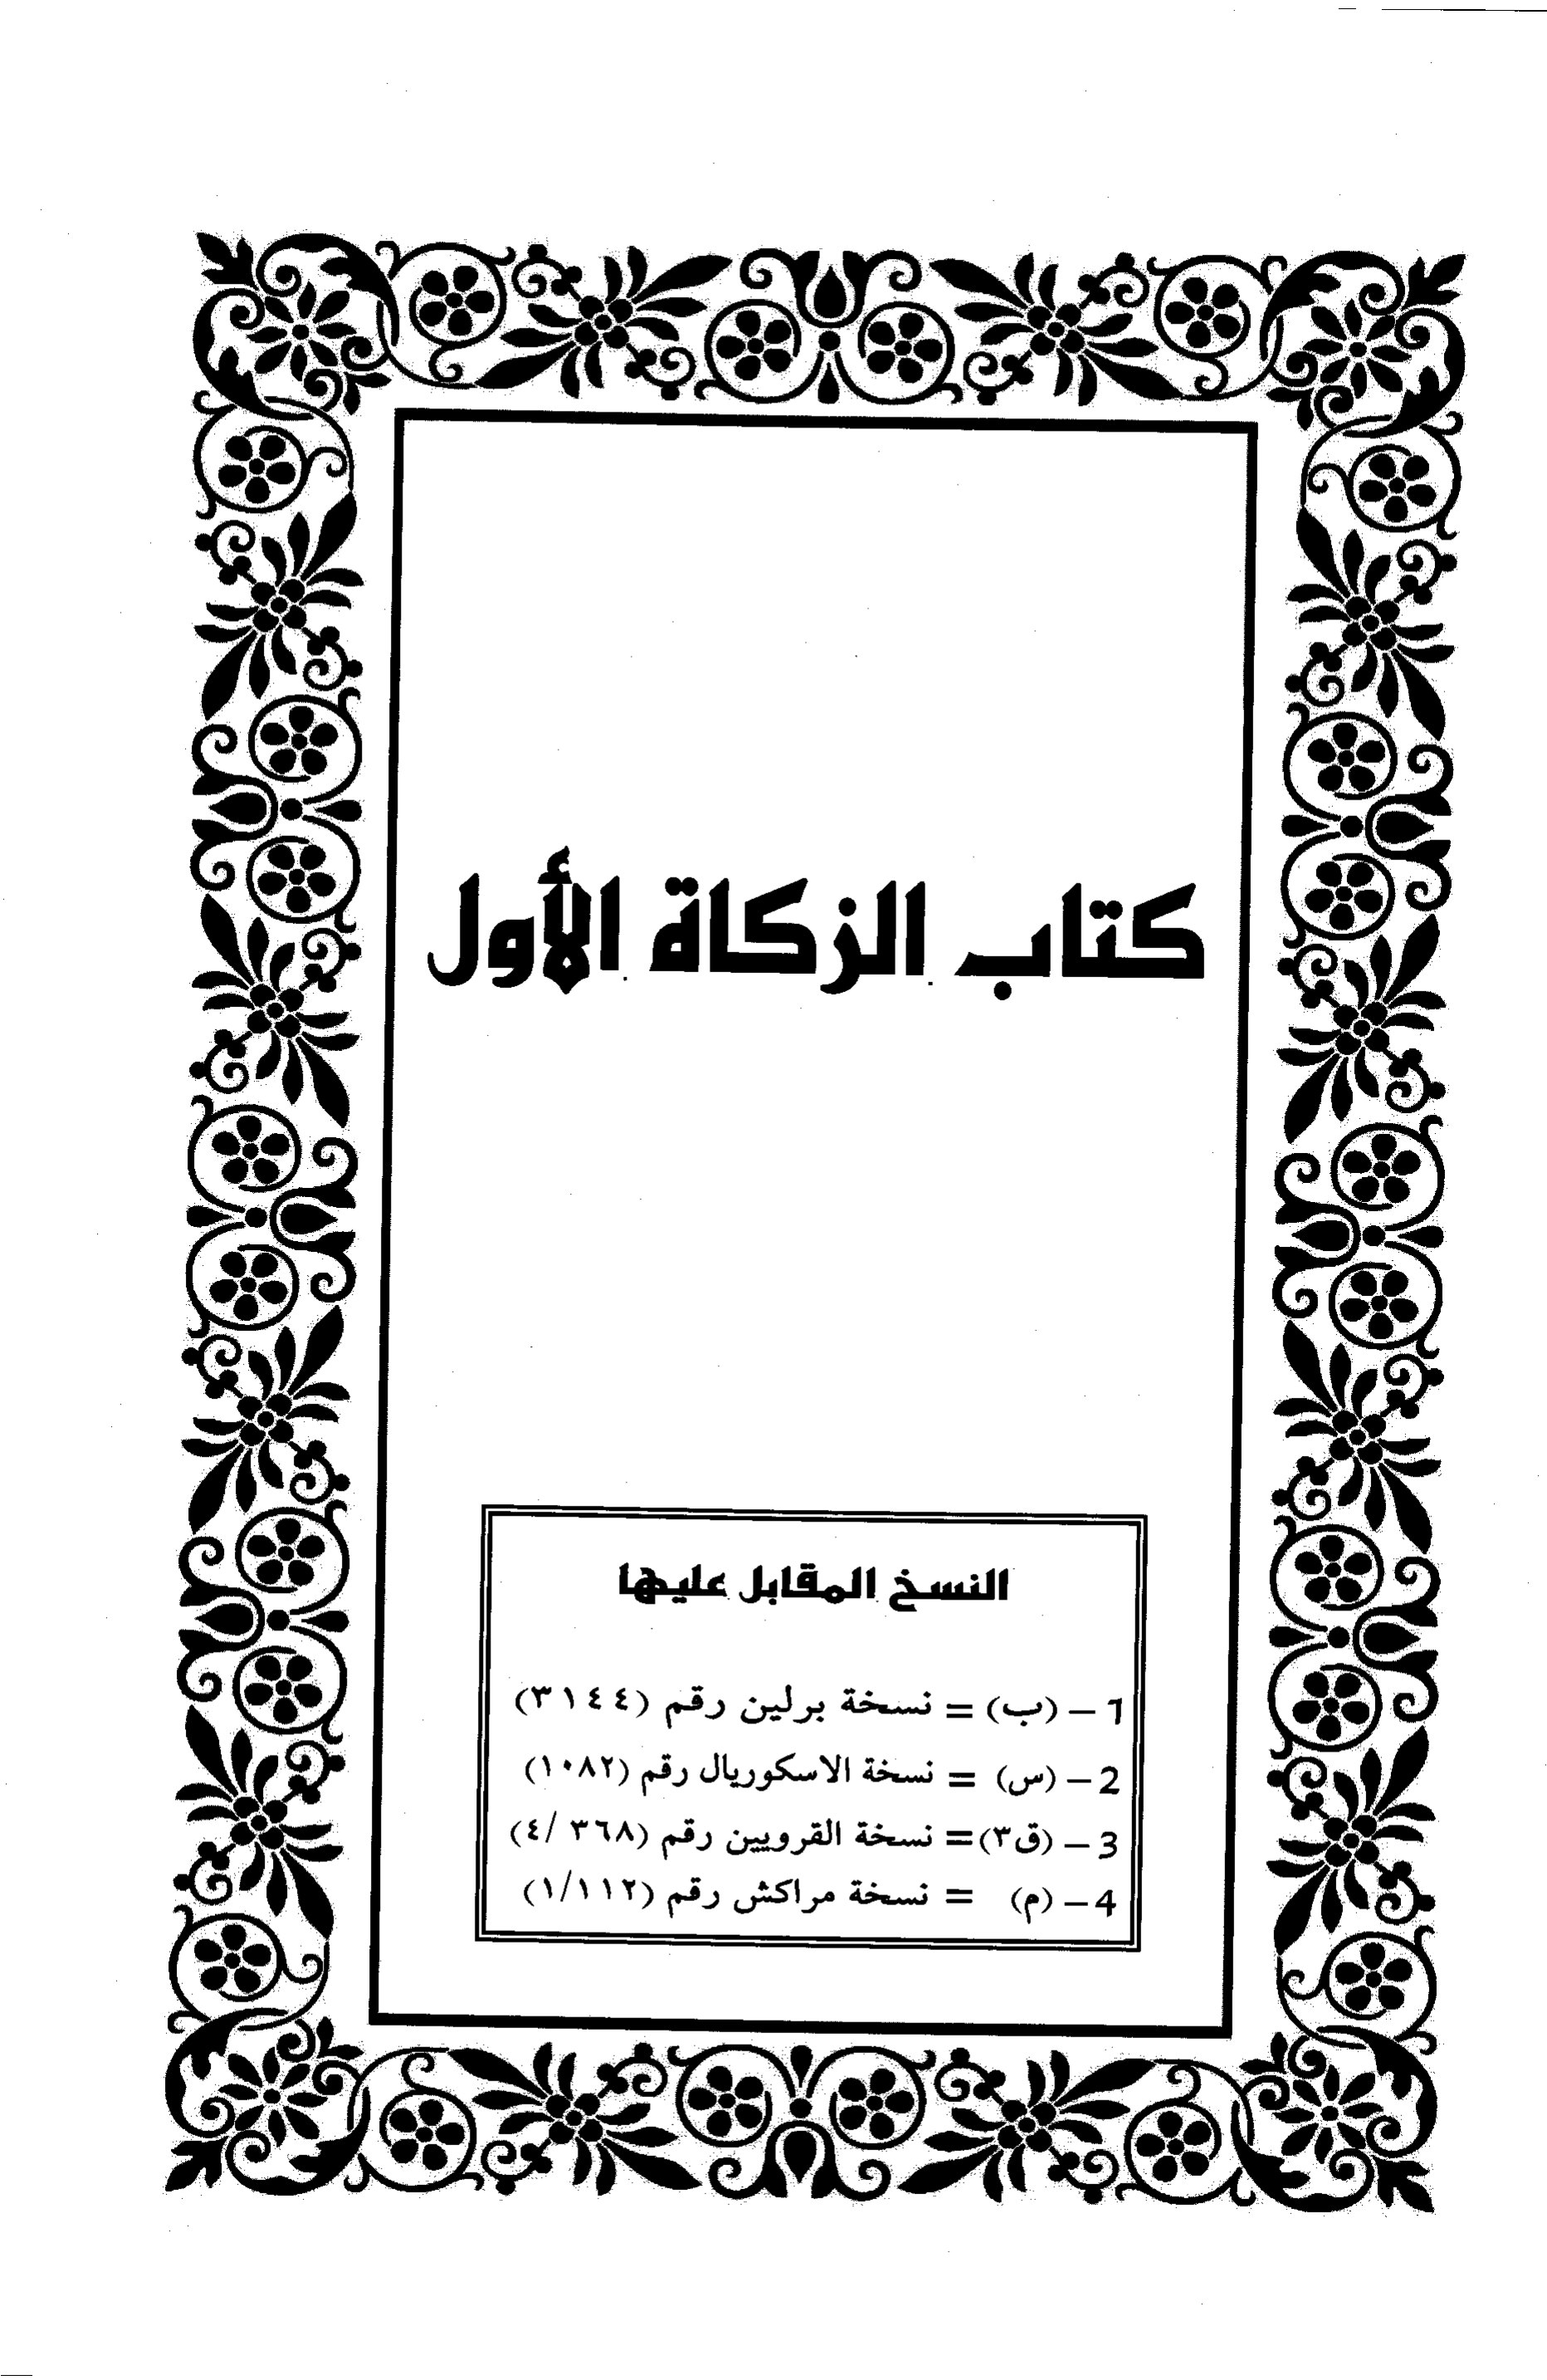 كتاب الزكاة الأول
النسخ المقابل عليها
1 – (ب) = نسخة برلين رقم (٣١٤٤)
2 – (س) = نسخة الاسكوريال رقم (١٠٨٢)
3 – (ق٣) = نسخة القرويين رقم (٣٦٨ /٤)
4 – (م) = نسخة مراكش رقم (١/١١٢)